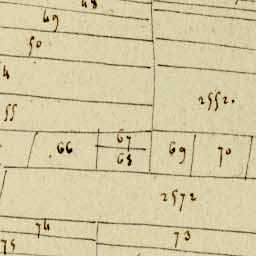 48
49
50
4
2552.
55
66 67 69 70
68
2572
74 73
75